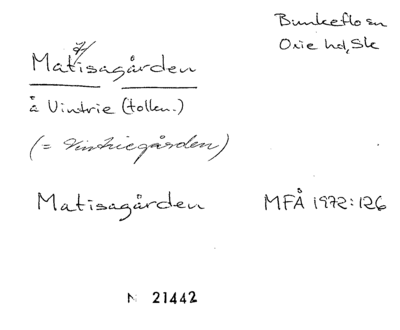 Bunkeflo sn
Oxie hd, Sk
Matisagården
å Vintrie (tolkn.)
(= Vintriegården)
Matisagården MFÅ 1972:126
N 21442